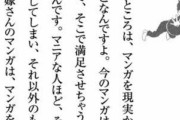 ところは、マンガを現実
なんですよ。今のマンガは
、そこで満足させちゃう
んです。マニアな人ほど、そ
してしまい、それ以外のも
嫁さんのマンガは、マンガを